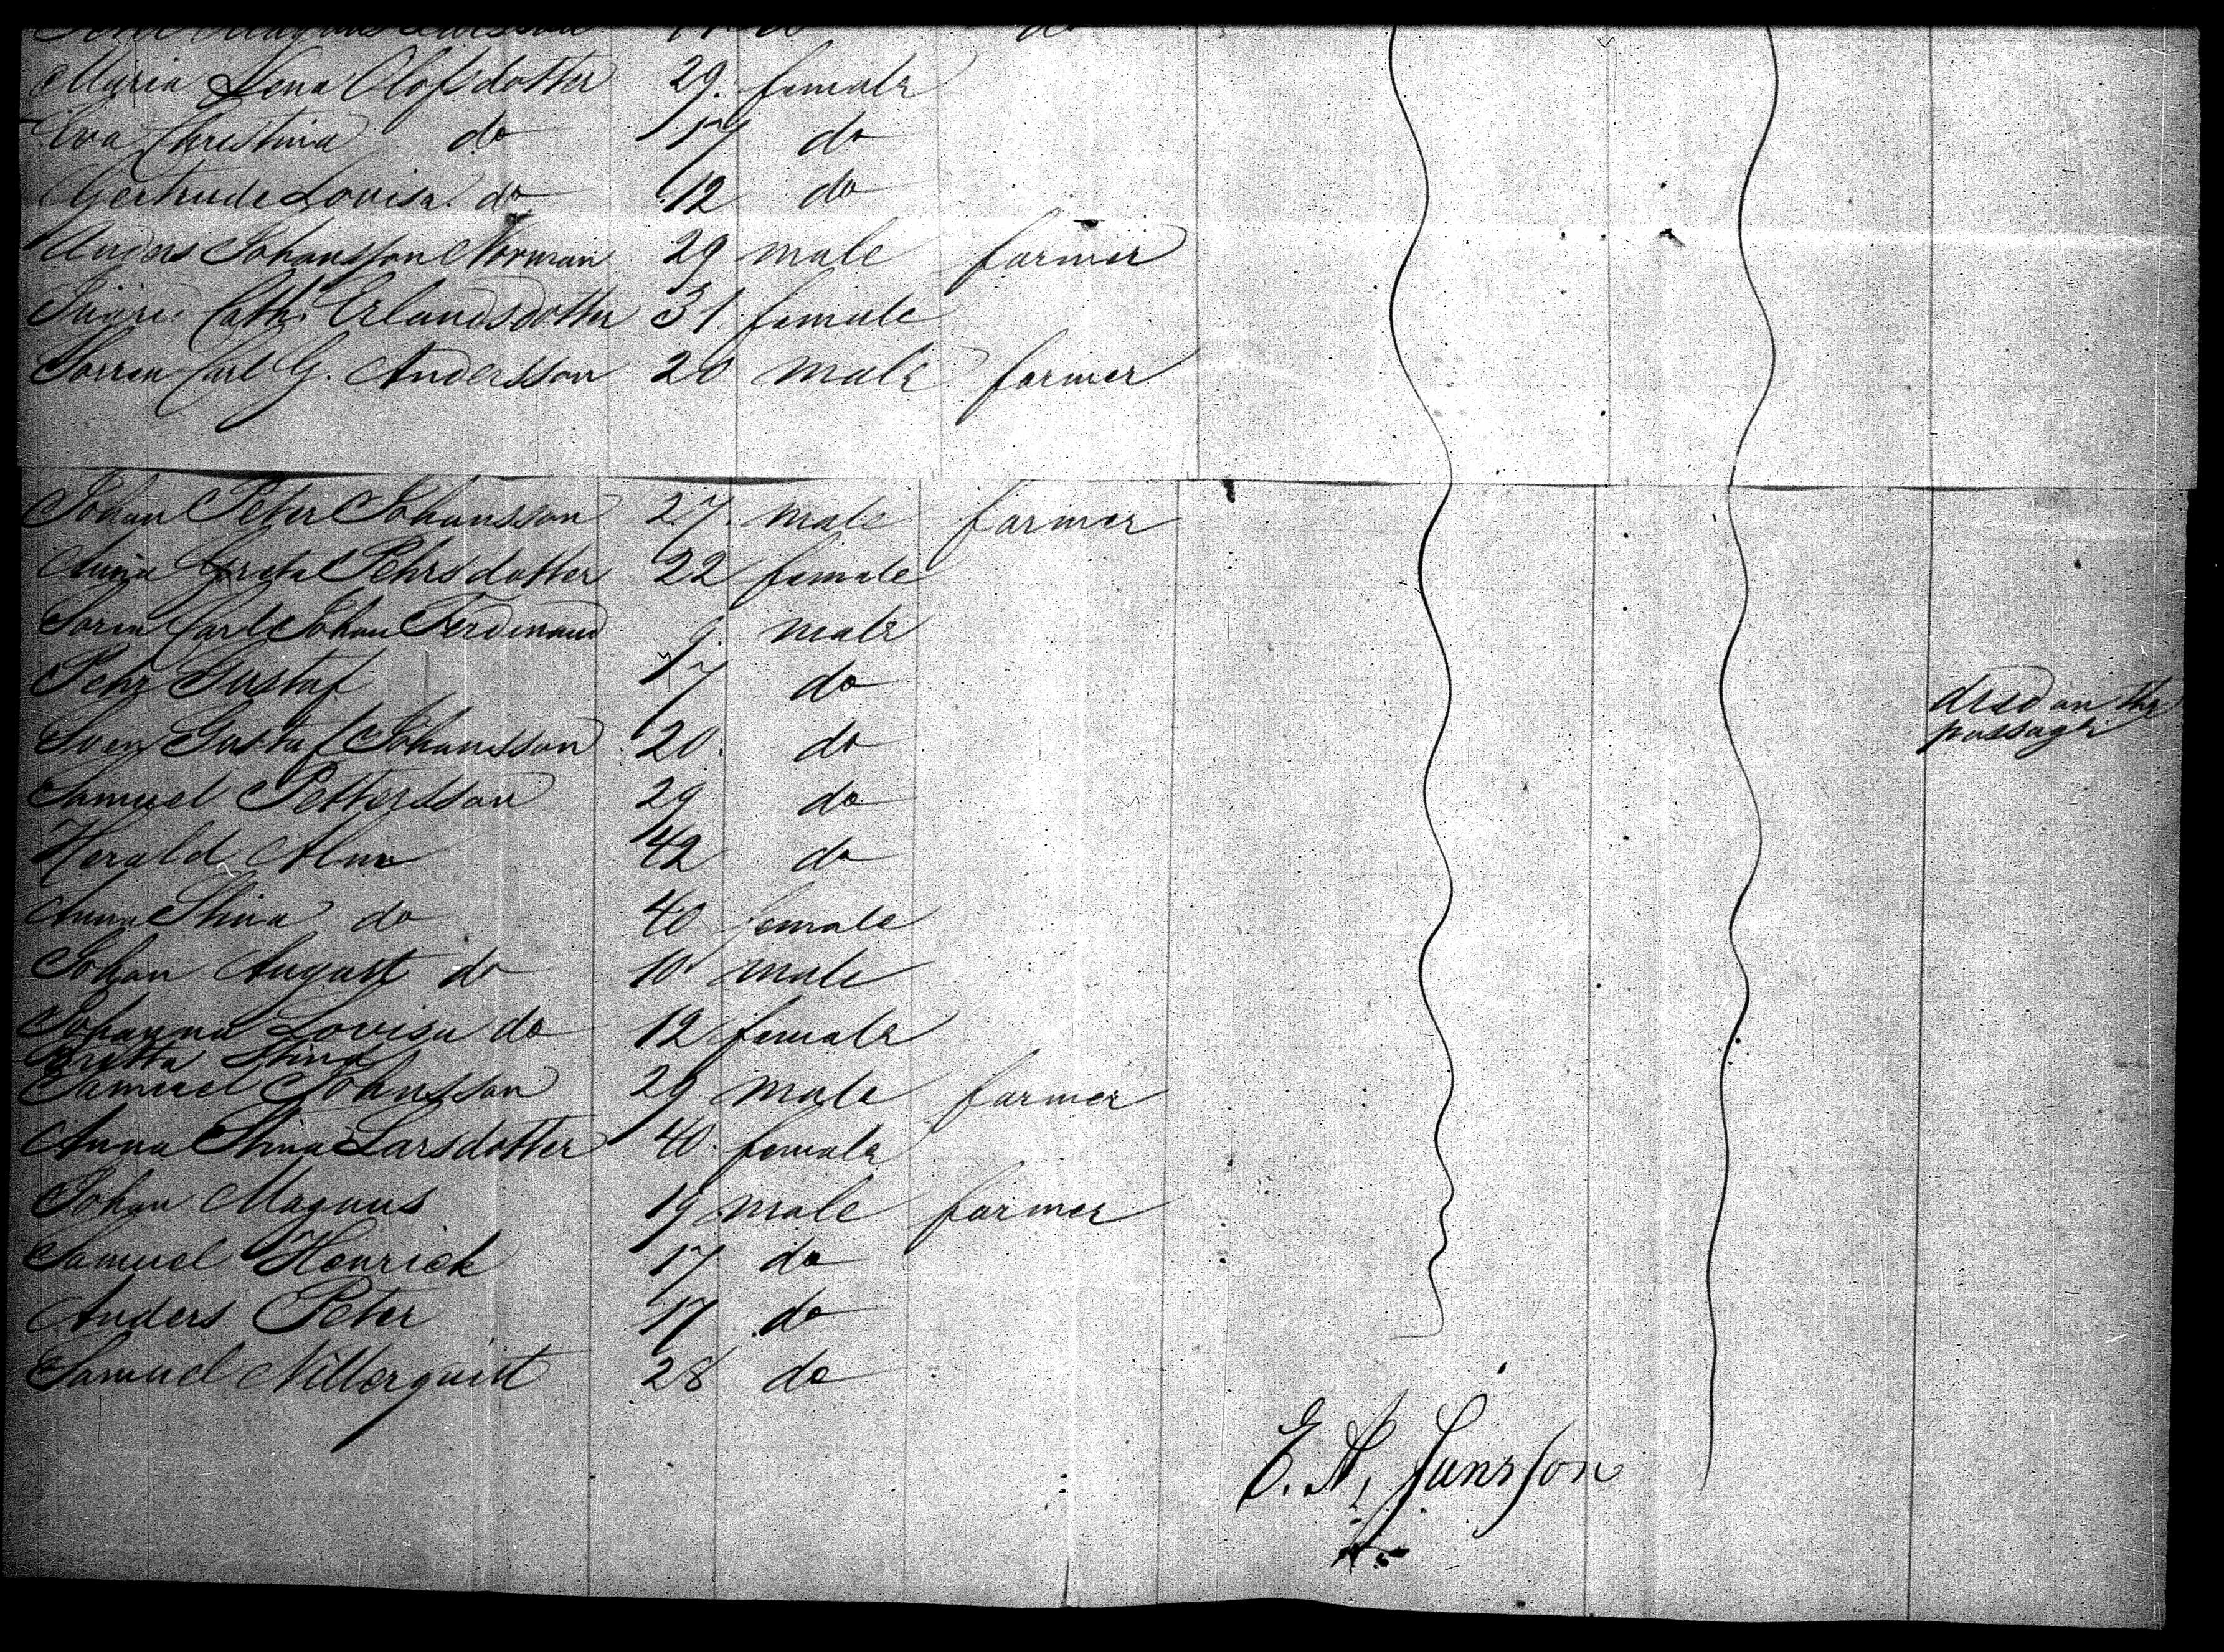 Maria Lena Olofsdotter 29. female
Eva Christina do 17 do
Gertrude Lovisa do 12 do
Anders Johansson Norman 29 male farmer
Cath. Erlandsdotter 31 female
Carl G. Andersson 20 male farmer
Johan Peter Johansson 27. male farmer
Anna Greta Pehrsdotter 22 female
Carl Johan Ferdinand 9. male
Pehr Gustaf 17 do died on the
passage
Sven Gustaf Johansson 20. do
Samuel Pettersson 29 do
Herald Alm 42 do
Anna Stina do 40 female
Johan August do 10 male
Johanna Lovisa do 12 female
Britta Stina
Samuel Johnsson 29 male farmer
Anna Stina Larsdotter 40. female
Johan Magnus 19 male farmer
Samuel Henrick 17 do
Anders Peter 17 do
Samuel 28 do
E. A. Jansson